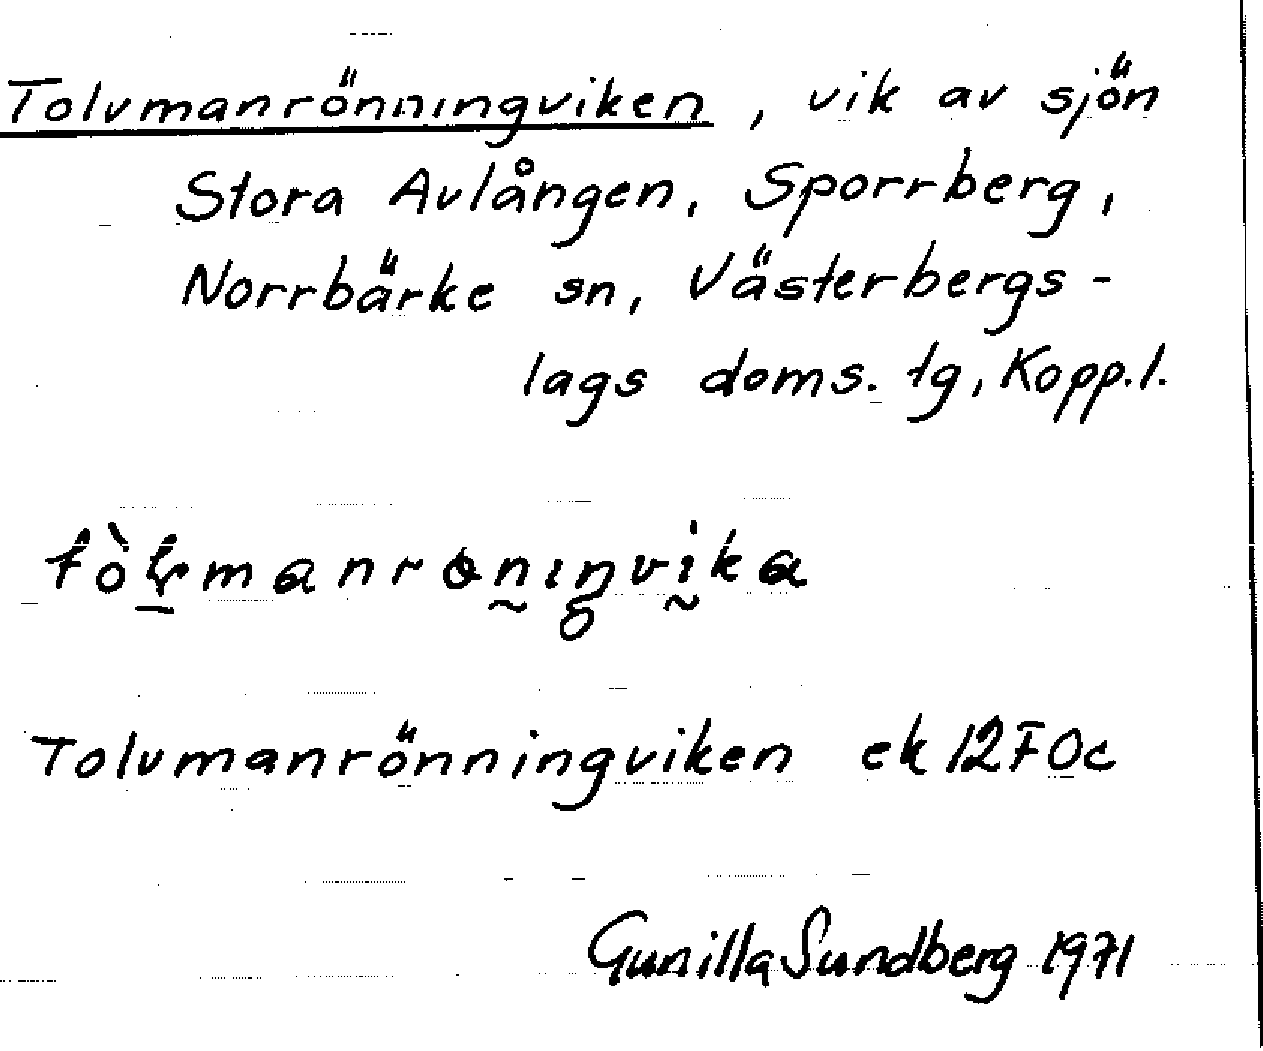 Tolvmanrönningviken, vik av sjön
Stora Avlången, Sporrberg,
Norrbärke sn, Västerbergs-
lags doms. tg, Kopp.l.
Tolvmanrönningviken ek 12F0c
Gunilla Sundberg 1971